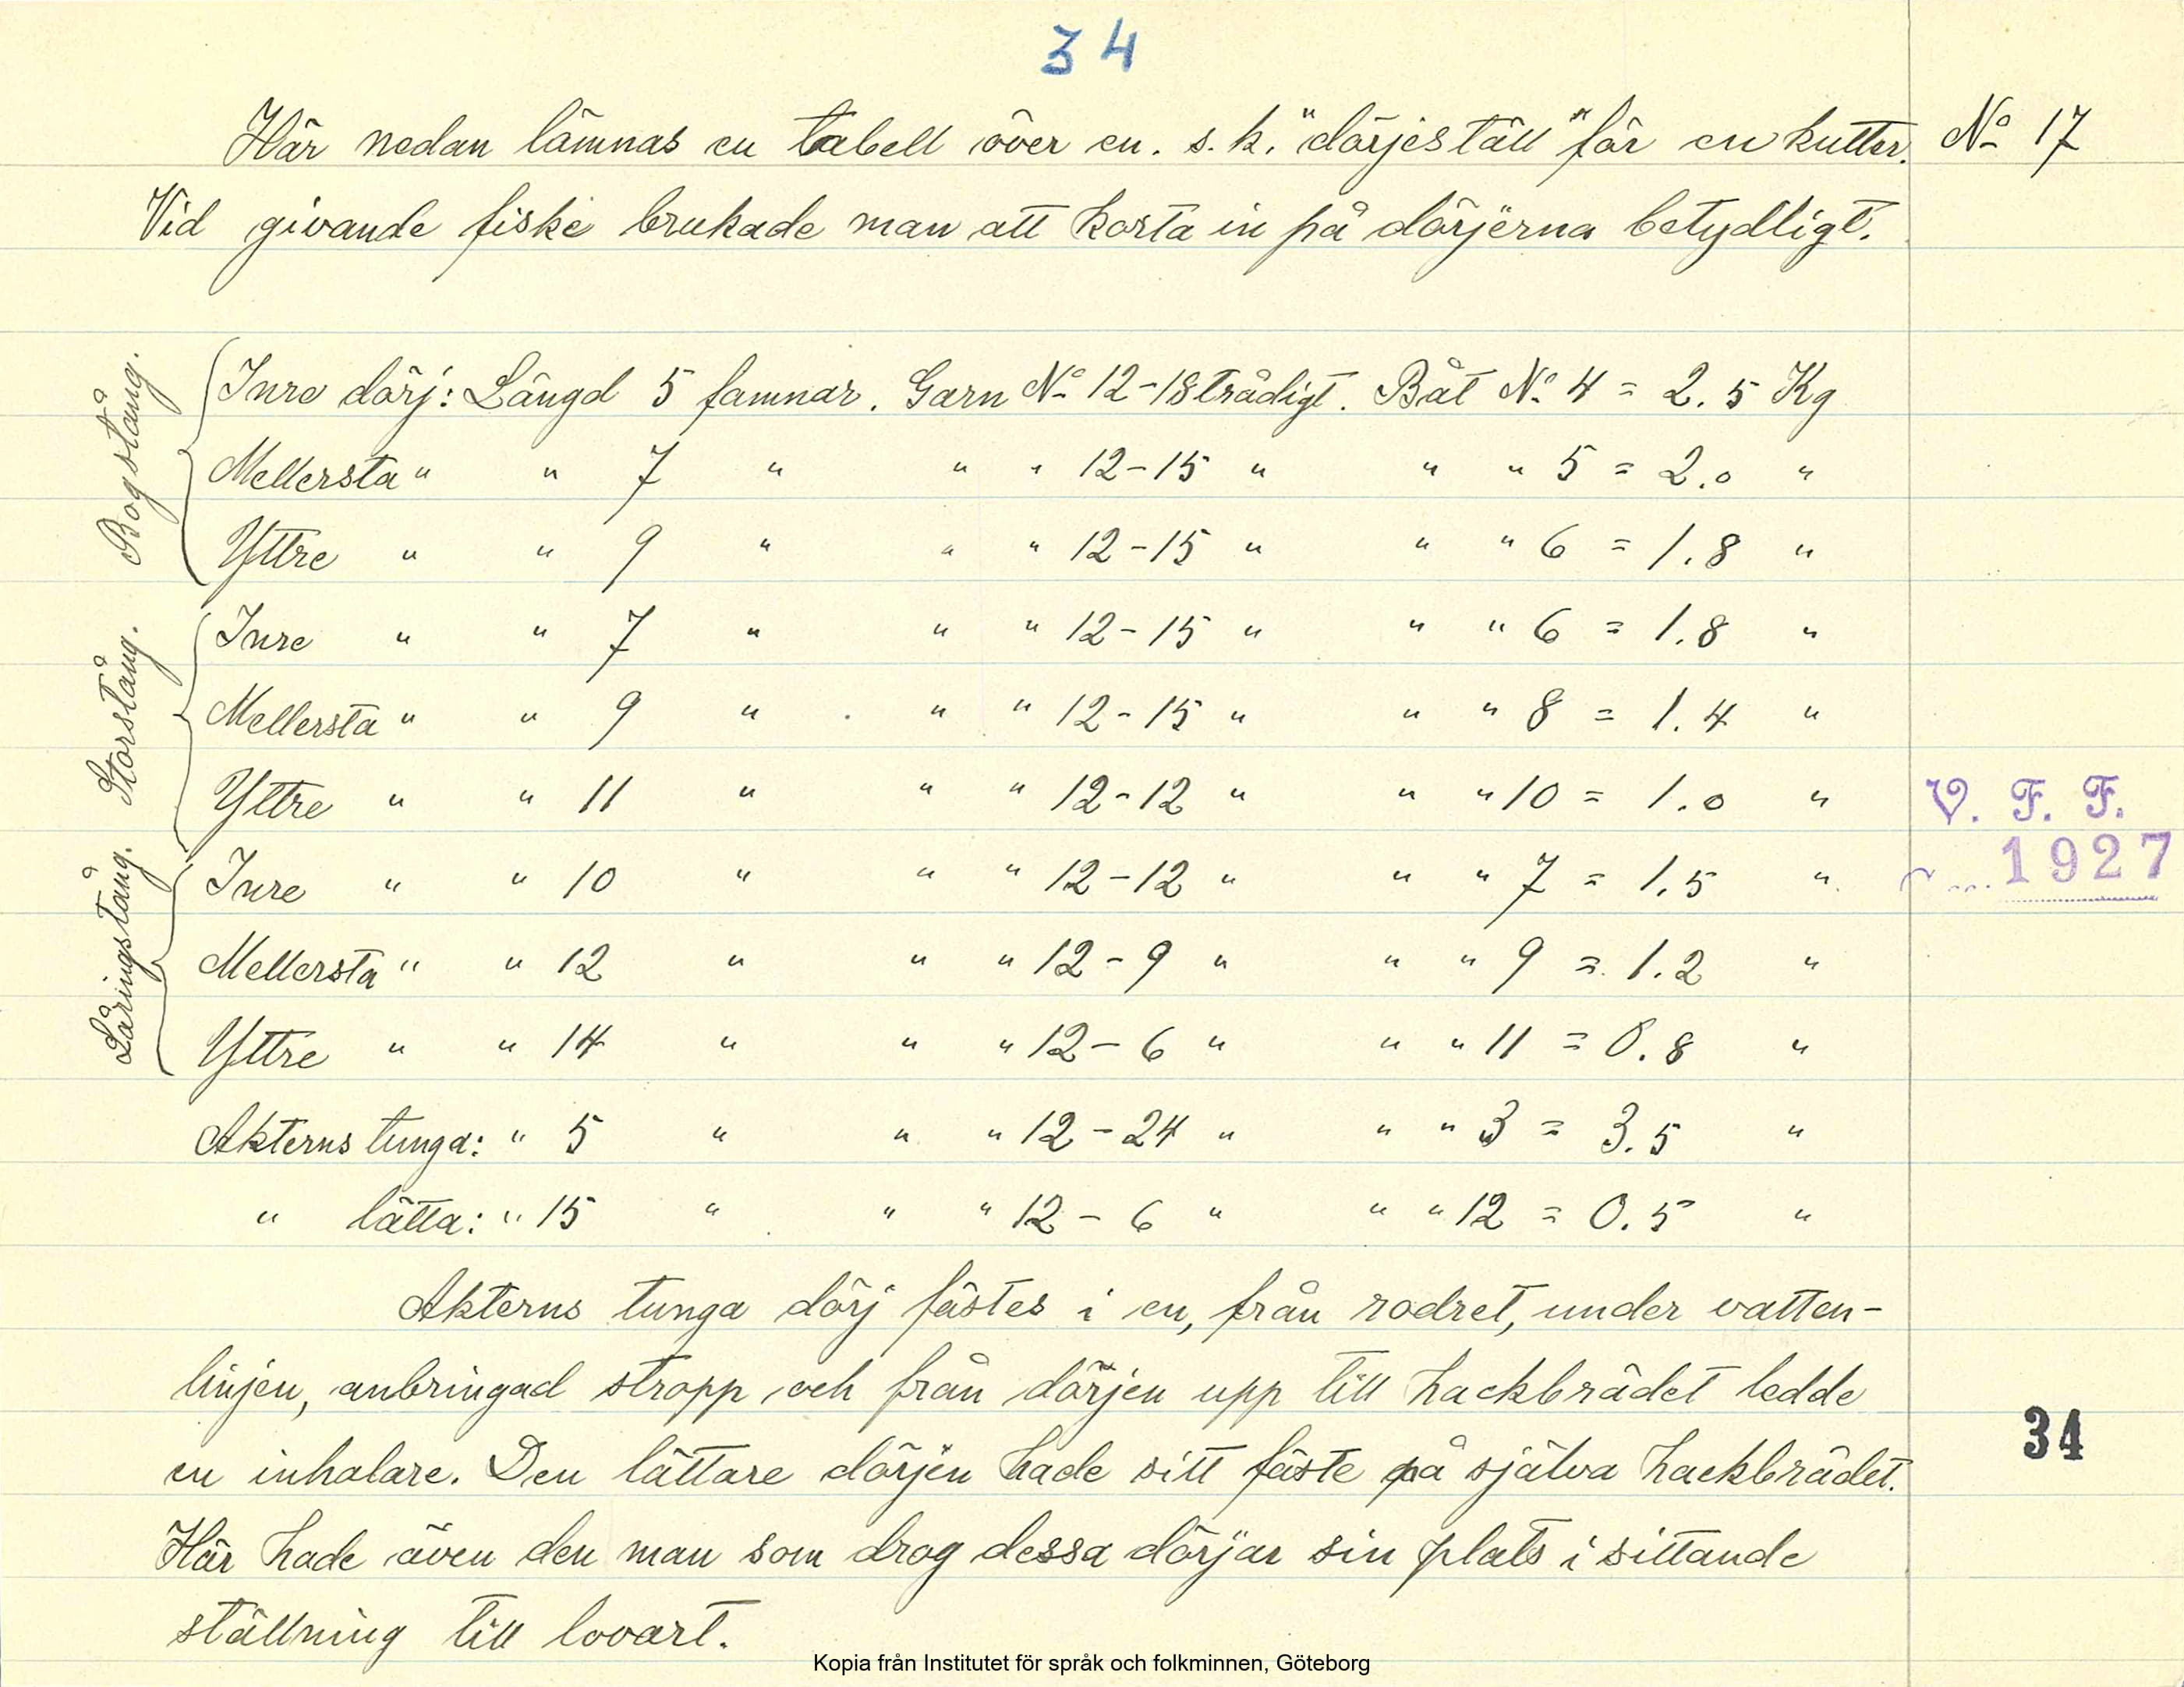 34
Här nedan lämnas en tabell över en. s.k. "dörjeställ" för en kutter. No 17
Vid givande fiske brukade man att korta in på dörjerna betydligt.
Bogstång.
Inre dörj: Längd 5 famnar. Garn No 12-18 trådigt. Båt No 4 = 2.5 Kg
Mellersta " " 7 " " " 12-15 " " " 5 = 2.0 "
Yttre " " 9 " " " 12-15 " " " 6 = 1.8 "
Storstång.
Inre " " 7 " " " 12-15 " " " 6 = 1.8 "
Mellersta " " 9 " " " 12-15 " " " 8 = 1.4 "
Yttre " " 11 " " " 12-12 " " " 10 = 1.0 "
V. F. F.
1927
Låringstång.
Inre " " 10 " " " 12-12 " " " 7 = 1.5 "
Mellersta " " 12 " " " 12-9 " " " 9 = 1.2 "
Yttre " " 14 " " " 12-6 " " " 11 = 0.8 "
Akterns tunga: " 5 " " " 12-24 " " " 3 = 3.5 "
" lätta: " 15 " " " 12-6 " " " 12 = 0.5 "
Akterns tunga dörj fästes i en, från rodret, under vatten-
linjen, anbringad stropp och från dörjen upp till hackbrädet ledde
34
en inhalare. Den lättare dörjen hade sitt fäste på själva hackbrädet.
Här hade även den man som drog dessa dörjar sin plats i sittande
ställning till lovart.
Kopia från Institutet för språk och folkminnen, Göteborg